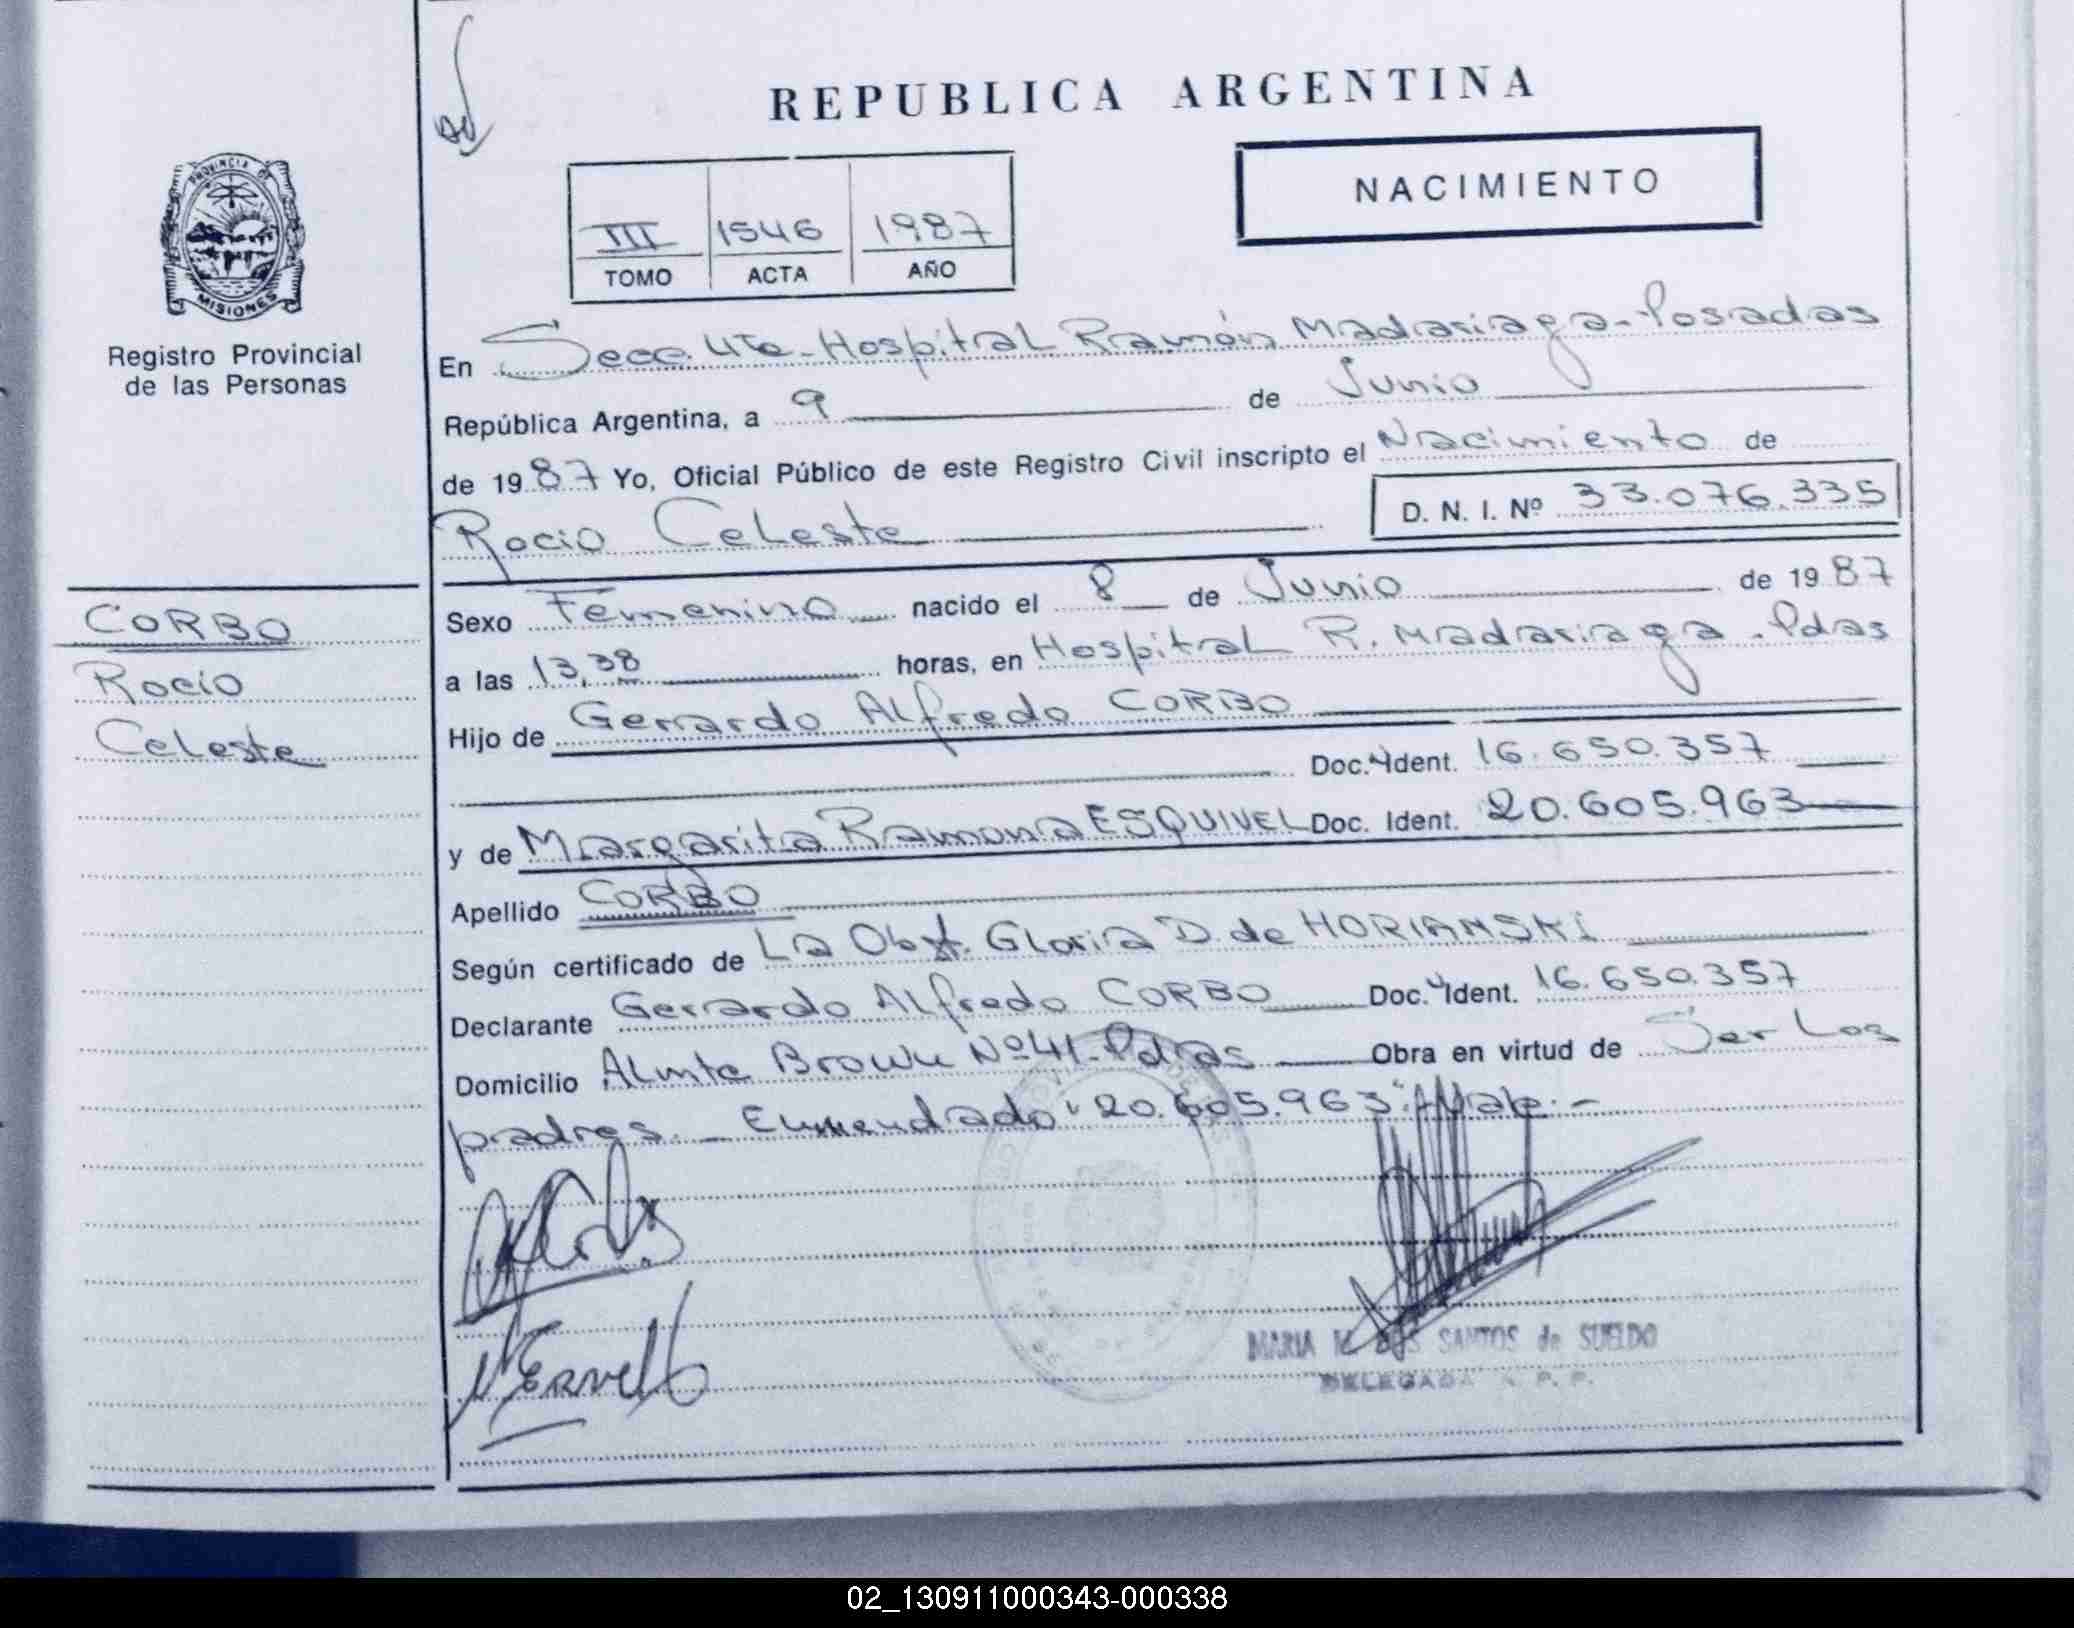 REPUBLICA ARGENTINA
NACIMIENTO
III 1546 1987
TOMO ACTA AÑO
PROVINCIA DE
MISIONES
Registro Provincial
de las Personas
CORBO
Rocio
Celeste
En Secc. 4ta - Hospital Ramón Madariaga - Posadas
República Argentina, a 9 de Junio
de 1987 Yo, Oficial Público de este Registro Civil inscripto el Nacimiento de
Rocio Celeste D. N. I. Nº 33.076.335
Sexo Femenino nacido el 8 de Junio de 1987
a las 13,38 horas, en Hospital R. Madariaga - Pdas
Hijo de Gerardo Alfredo CORBO
Doc. Ident. 16.650.357
y de Margarita Ramona ESQUIVEL Doc. Ident. 20.605.963
Apellido CORBO
Según certificado de La Obst. Gloria D. de HORIANSKI
Declarante Gerardo Alfredo CORBO Doc. Ident. 16.650.357
Domicilio Almte Brown Nº 41 - Pdas Obra en virtud de Ser Los
padres. - Enmendado "20.605.963" Vale. -
MARIA DOS SANTOS de SUELDO
DELEGADA R. P. P.
02_130911000343-000338